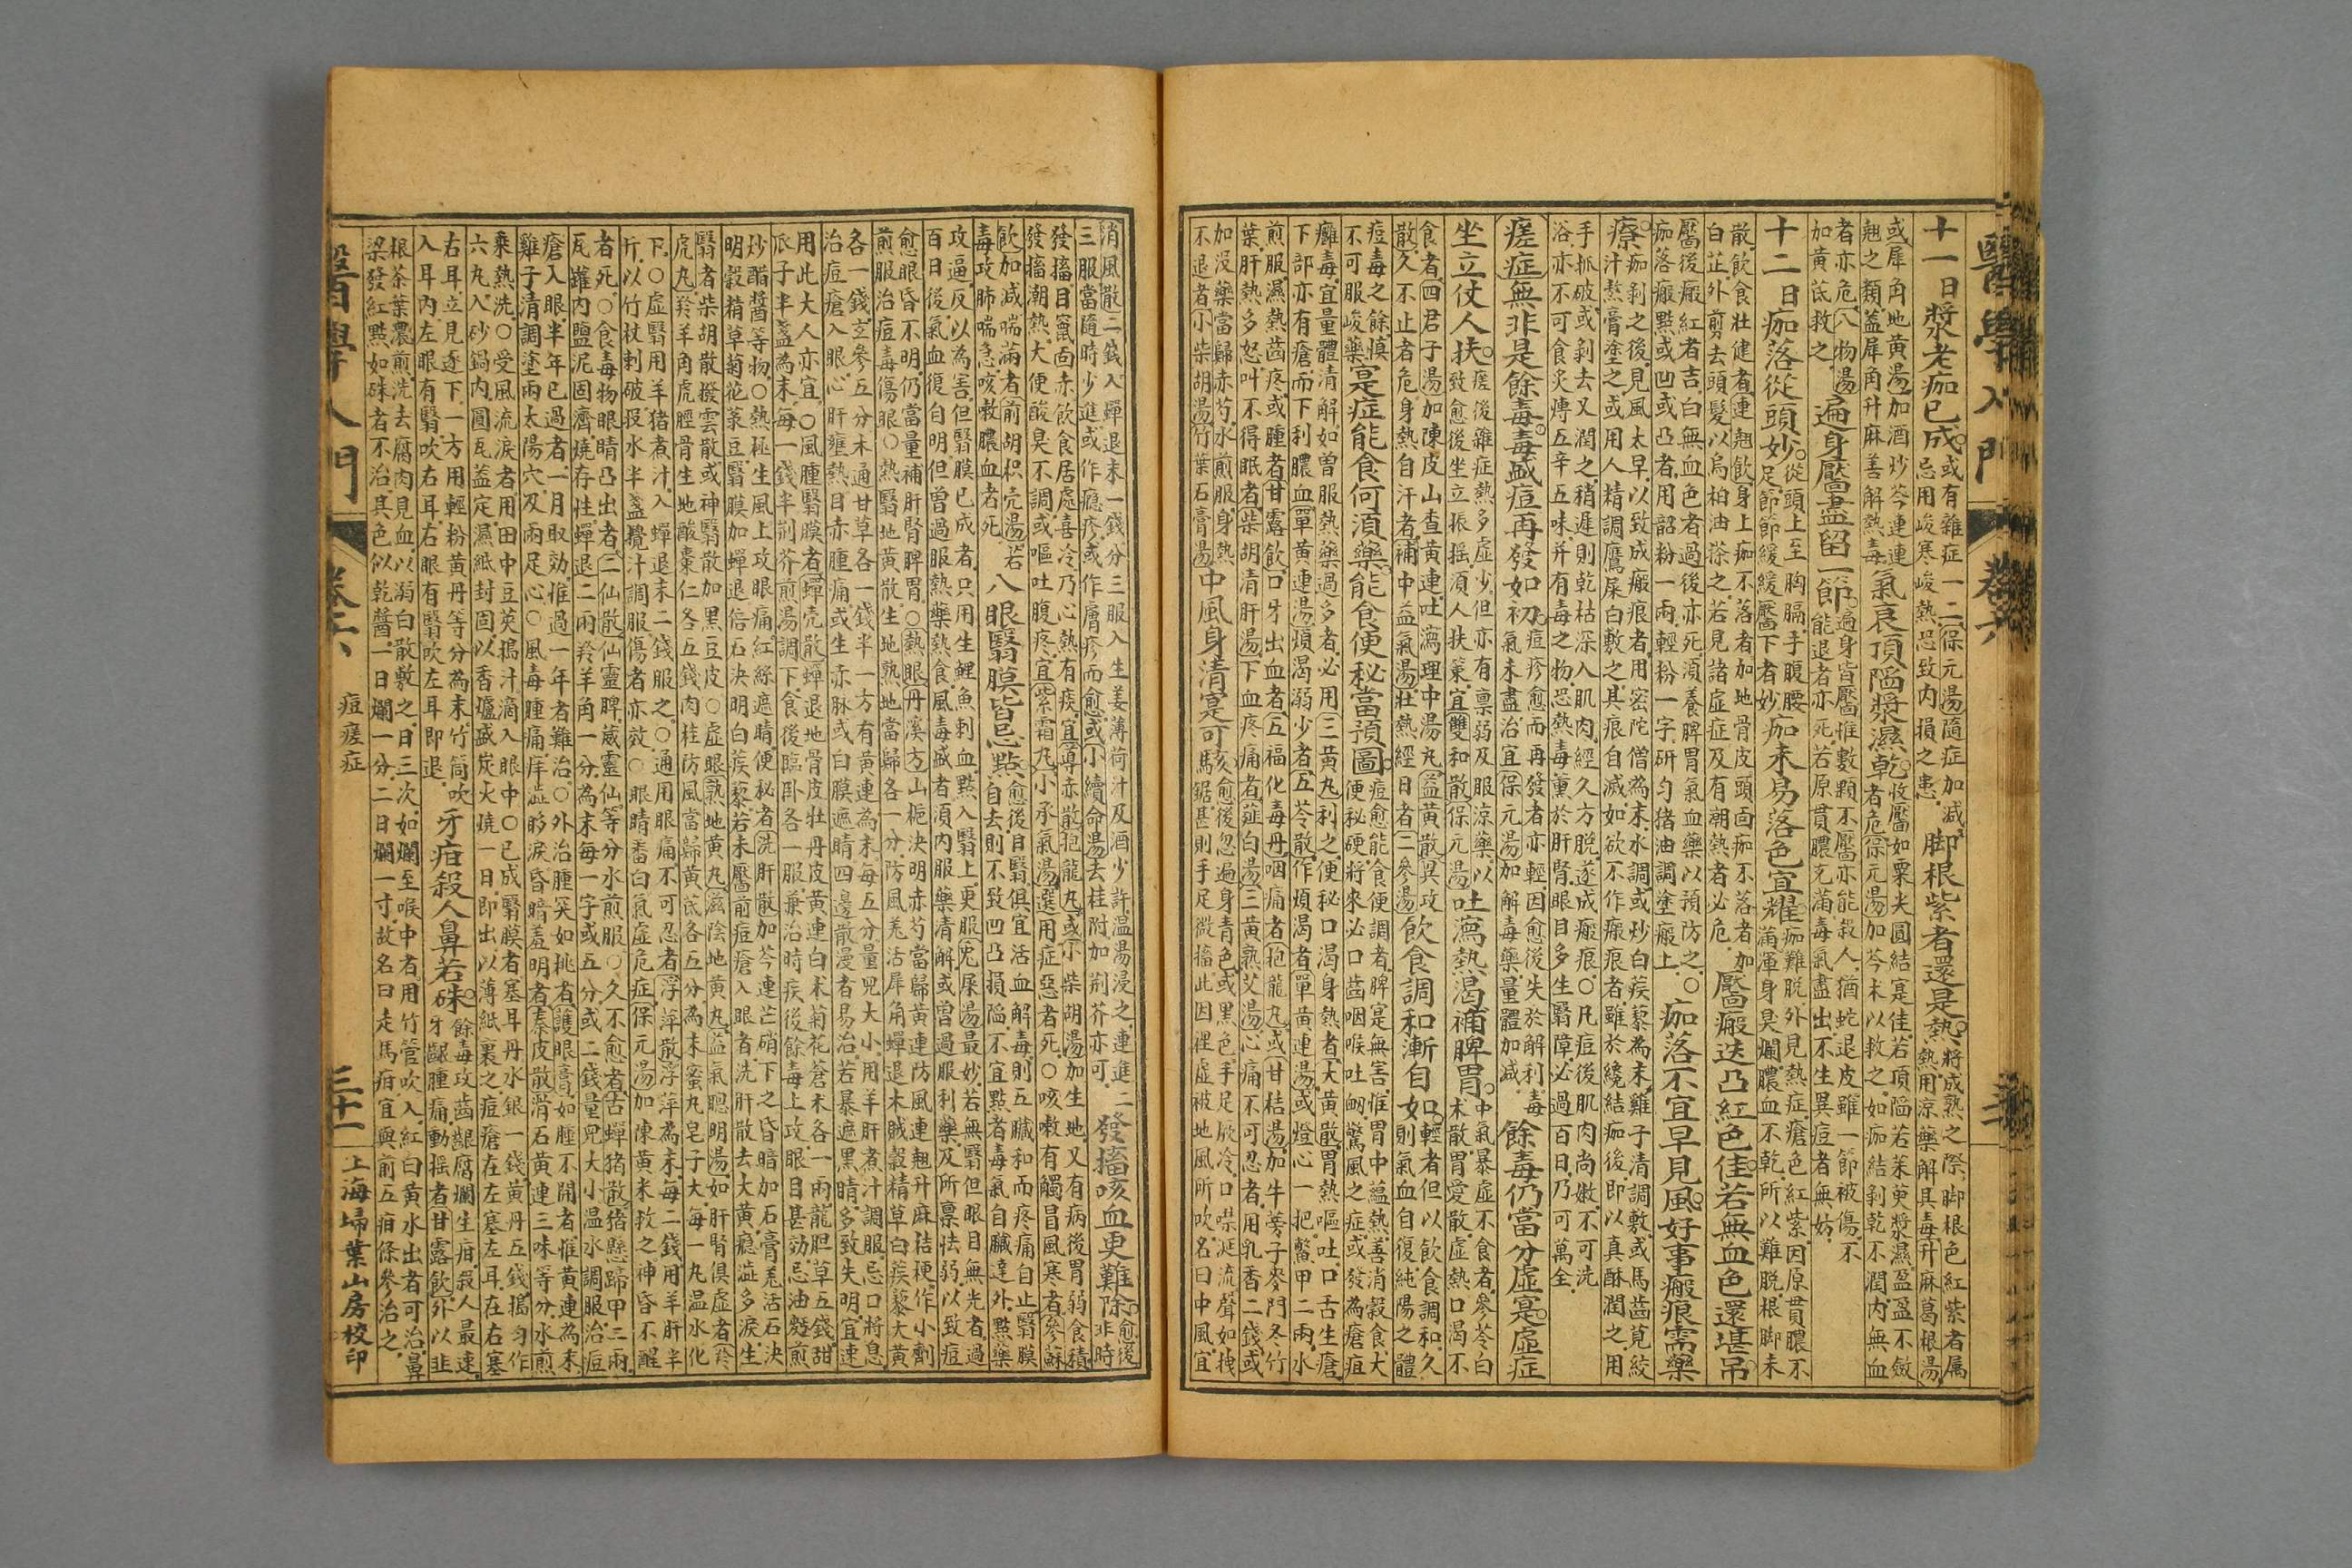 醫學入門
卷六
十一日漿老痂已成
或有雜症一二保元湯隨症加減
忌用峻寒峻熱恐致內損之患
脚根紫者還是熱
將成熟之際脚根色紅紫者属
熱用涼藥解其毒升麻葛根湯
或犀角地黃湯加酒炒芩連連
翹之類蓋犀角升麻善解熱毒
氣衰頂陷漿濕乾
收靨如粟尖圓結寔佳若頂陷若茱萸漿濕盈盈不斂
者危保元湯加芩朮以救之如痂結剝乾不潤內無血
者亦危八物湯
加黃芪救之
遍身靨盡留一節
遍身皆靨惟數顆不靨亦能殺人猶蛇退皮雖一節被傷不
能退者亦死若原貫膿充滿毒氣盡出不生異痘者無妨
十二日痂落從頭妙
從頭上至胸膈手腹腰
足節節緩緩靨下者妙
痂未易落色宜耀
痂難脱外見熱症瘡色紅紫因原貫膿不
滿渾身臭爛膿血不乾所以難脱根脚未
散飲食壯健者連翹飲身上痂不落者加地骨皮頭面痂不落者加
白芷外剪去頭髮以烏柏油搽之若見諸虛症及有潮熱者必危
靨瘢迭凸紅色佳若無血色還堪吊
靨後瘢紅者吉白無血色者過後亦死須養脾胃氣血藥以預防之
痂落瘢點或凹或凸者用韶粉一兩輕粉一字研勻猪油調塗瘢上
○痂落不宜早見風好事瘢痕需藥
療
痂剥之後見風太早以致成瘢痕者用密陀僧為末水調或炒白蒺藜為末雞子清調敷或馬齒莧絞
汁熬膏塗之或用人精調鷹屎白敷之其痕自滅如欲不作瘢痕者雖於纔結痂後即以真酥潤之用
手抓破或剥去又潤之稍遲則乾枯深入肌肉經久方脱遂成瘢痕○凡痘後肌肉尚嫩不可洗
浴亦不可食炙煿五辛五味并有毒之物恐熱毒熏於肝腎眼目多生翳障必過百日乃可萬全
瘥症無非是餘毒毒盛痘再發如初
痘疹愈而再發者亦輕因愈後失於解利毒
氣未盡治宜保元湯加解毒藥量體加減
餘毒仍當分虛寔虛症
坐立仗人扶
瘥後雜症熱多虛少但亦有禀弱及服涼藥以
致愈後坐立振搖須人扶策宜雙和散保元湯
吐瀉熱渴補脾胃
中氣暴虛不食者參苓白
朮散胃愛散虛熱口渴不
食者四君子湯加陳皮山查黃連吐瀉理中湯丸益黃散異攻
散久不止者危身熱自汗者補中益氣湯壯熱經日者二參湯
飲食調和漸自如
輕者但以飲食調和久
則氣血自復純陽之體
痘毒之餘慎
不可服峻藥
寔症能食何須藥能食便秘當預圖
痘愈能食便調者脾寔無害惟胃中蘊熱善消穀食大
便秘硬將來必口齒咽喉吐衂驚風之症或發為瘡疽
癰毒宜量體清解如曾服熱藥過多者必用三黃丸利之便秘口渴身熱者大黃散胃熱嘔吐口舌生瘡
下部亦有瘡而下利膿血單黃連湯煩渴弱少者五苓散作煩渴者單黃連湯或燈心一把鱉甲二兩水
煎服濕熱齒疼或腫者甘露飲口牙出血者五福化毒丹咽痛者抱龍丸或甘桔湯加牛蒡子麥門冬竹
葉肝熱多怒叫不得眠者柴胡清肝湯下血疼痛者薤白湯三黃熟艾湯心痛不可忍者用乳香二錢或
加沒藥當歸赤芍水煎服身熱
不退者小柴胡湯竹葉石膏湯
中風身清寔可駭
愈後忽遍身青色或黑色手足欣冷口噤涎流聲如拽
鋸甚則手足微搐此因裡虛被地風所吹名曰中風宜
消風散二錢入蟬退末一錢分三服入生姜薄荷汁及酒少許温湯浸之連進二
三服當隨時少進或作癮疹或作膚疹而愈或小續命湯去桂附加荆芥亦可
發搐咳血更難除
愈後
非時
發搐目竄面赤飲食居處喜冷乃心熱有痰宜蓴亦散抱龍丸或小柴胡湯加生地又有病後胃弱食積
發搐潮熱大便酸臭不調或嘔吐腹疼宜紫霜丸小承氣湯選用症惡者死○咳嗽有觸冒風寒者參蘇
飲加減喘滿者前胡枳壳湯若
毒攻肺喘急咳嗽膿血者死
八眼翳膜皆忌點
愈後目翳俱宜活血解毒則五臟和而疼痛自止翳膜
自去則不致凹凸損陷不宜點者毒氣自臟達外點藥
攻逼反以為害但翳膜已成者只用生鯉魚刺血點入翳上更服兎屎湯最妙若無翳但眼目無光者過
百日後氣血復自明但曾過服熱藥熱食風毒盛者須內服藥清解或曾過服利藥及所禀怯弱以致痘
愈眼昏不明仍當量補肝腎脾胃○熱眼丹溪方山梔決明赤芍當歸黃連防風連翹升麻桔梗作小劑
煎服治痘毒傷眼○熱翳地黃散生地熟地當歸各一分防風羌活犀角蟬退木賊穀精草白蒺藜大黃
各一錢玄參五分木通甘草各一錢半一方有黃連為末每五分量兒大小用羊肝煮汁調服忌口將息
治痘瘡入眼心肝壅熱目赤腫痛或生赤脉或白膜遮睛四邊散漫者易治若暴遮黑睛多致失明宜速
用此大人亦宜○風腫翳膜者蟬壳散蟬退地骨皮牡丹皮黃連白朮菊花蒼朮各一兩龍胆草五錢甜
瓜子半盞為末每一錢半荆芥煎湯調下食後臨卧各一服兼治時疾後餘毒上攻眼目甚効忌油麪煎
炒醋醬等物○熱極生風上攻眼痛紅絲遮睛便秘者洗肝散加芩連芒硝下之昏暗加石膏羌活石決
明穀精草菊花菉豆翳膜加蟬退倍石決明白蒺藜若未靨前痘瘡入眼者洗肝散去大黃癮澁多淚生
翳者柴胡散撥雲散或神翳散加黑豆皮○虛眼熟地黃丸滋陰地黃丸益氣聰明湯如肝腎俱虛者羚
虎丸羚羊角虎脛骨生地酸棗仁各五錢肉桂防風當歸黃芪各五分為末蜜丸皂子大每一丸温水化
下○虛翳用羊猪煮汁入蟬退末二錢服之○通用眼痛不可忍者浮萍散浮萍為末每二錢用羊肝半
斤以竹杖刺破投水半盞攪汁調服傷者亦效○眼睛畨白氣虛危症保元湯加陳黃米救之神昏不醒
者死○食毒物眼睛凸出者二仙散仙靈脾葳靈仙等分水煎服○久不愈者古蟬猪散猪懸蹄甲二兩
瓦罐內鹽泥固濟燒存性蟬退二兩羚羊角一分為末每一字或五分或二錢量兒大小温水調服治痘
瘡入眼半年已過者一月取効惟過一年者難治○外治腫突如桃者護眼膏如腫不開者惟黃連為末
雞子清調塗兩太陽穴及兩足心○風毒腫痛痒澁眵淚昏暗羞明者秦皮散滑石黃連三味等分水煎
乘熱洗○受風流淚者用田中豆莢搗汁滴入眼中○已成翳膜者塞耳丹水銀一錢黃丹五錢搗勻作
六丸入砂鍋內圓瓦盖定濕紙封固以香爐盛炭火燒一日即出以薄紙裹之痘瘡在左塞左耳在右塞
右耳立見逐下一方用輕粉黃丹等分為末竹筒吹
入耳內左眼有翳吹右耳右眼有翳吹左耳即退
牙疳殺人鼻若硃
餘毒攻齒齦腐爛生疳殺人最速
牙齦腫痛動搖者甘露飲外以韭
根茶葉濃煎洗去腐肉見血以溺白散敷之日三次如爛至喉中者用竹管吹入紅白黃水出者可治鼻
梁發紅點如硃者不治其色似乾醬一日爛一分二日爛一寸故名曰走馬疳宜與前五疳條參治之
醫學入門
卷六
痘瘥症
三十一
上海埽葉山房校印